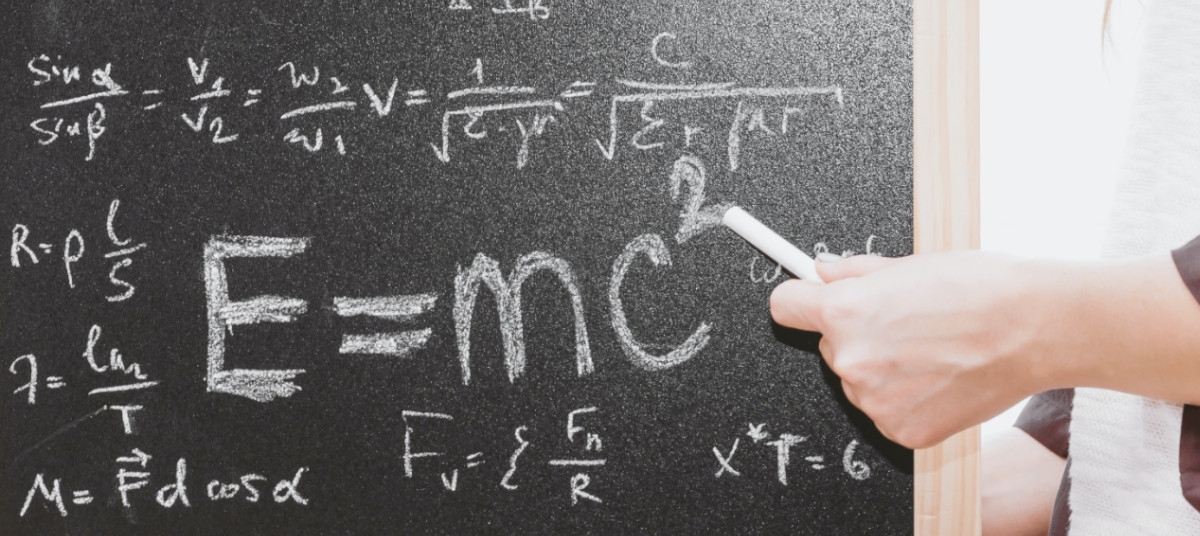 sin α / sin β = V1 / V2 = w2 / w1 V = 1 / √(ε·μ) = C / √(εr μr)
R = ρ l / S
E = mc²
λ = ln2 / T
Fv = ξ Fn / R
X*T = 6
M = F⃗ d cos α